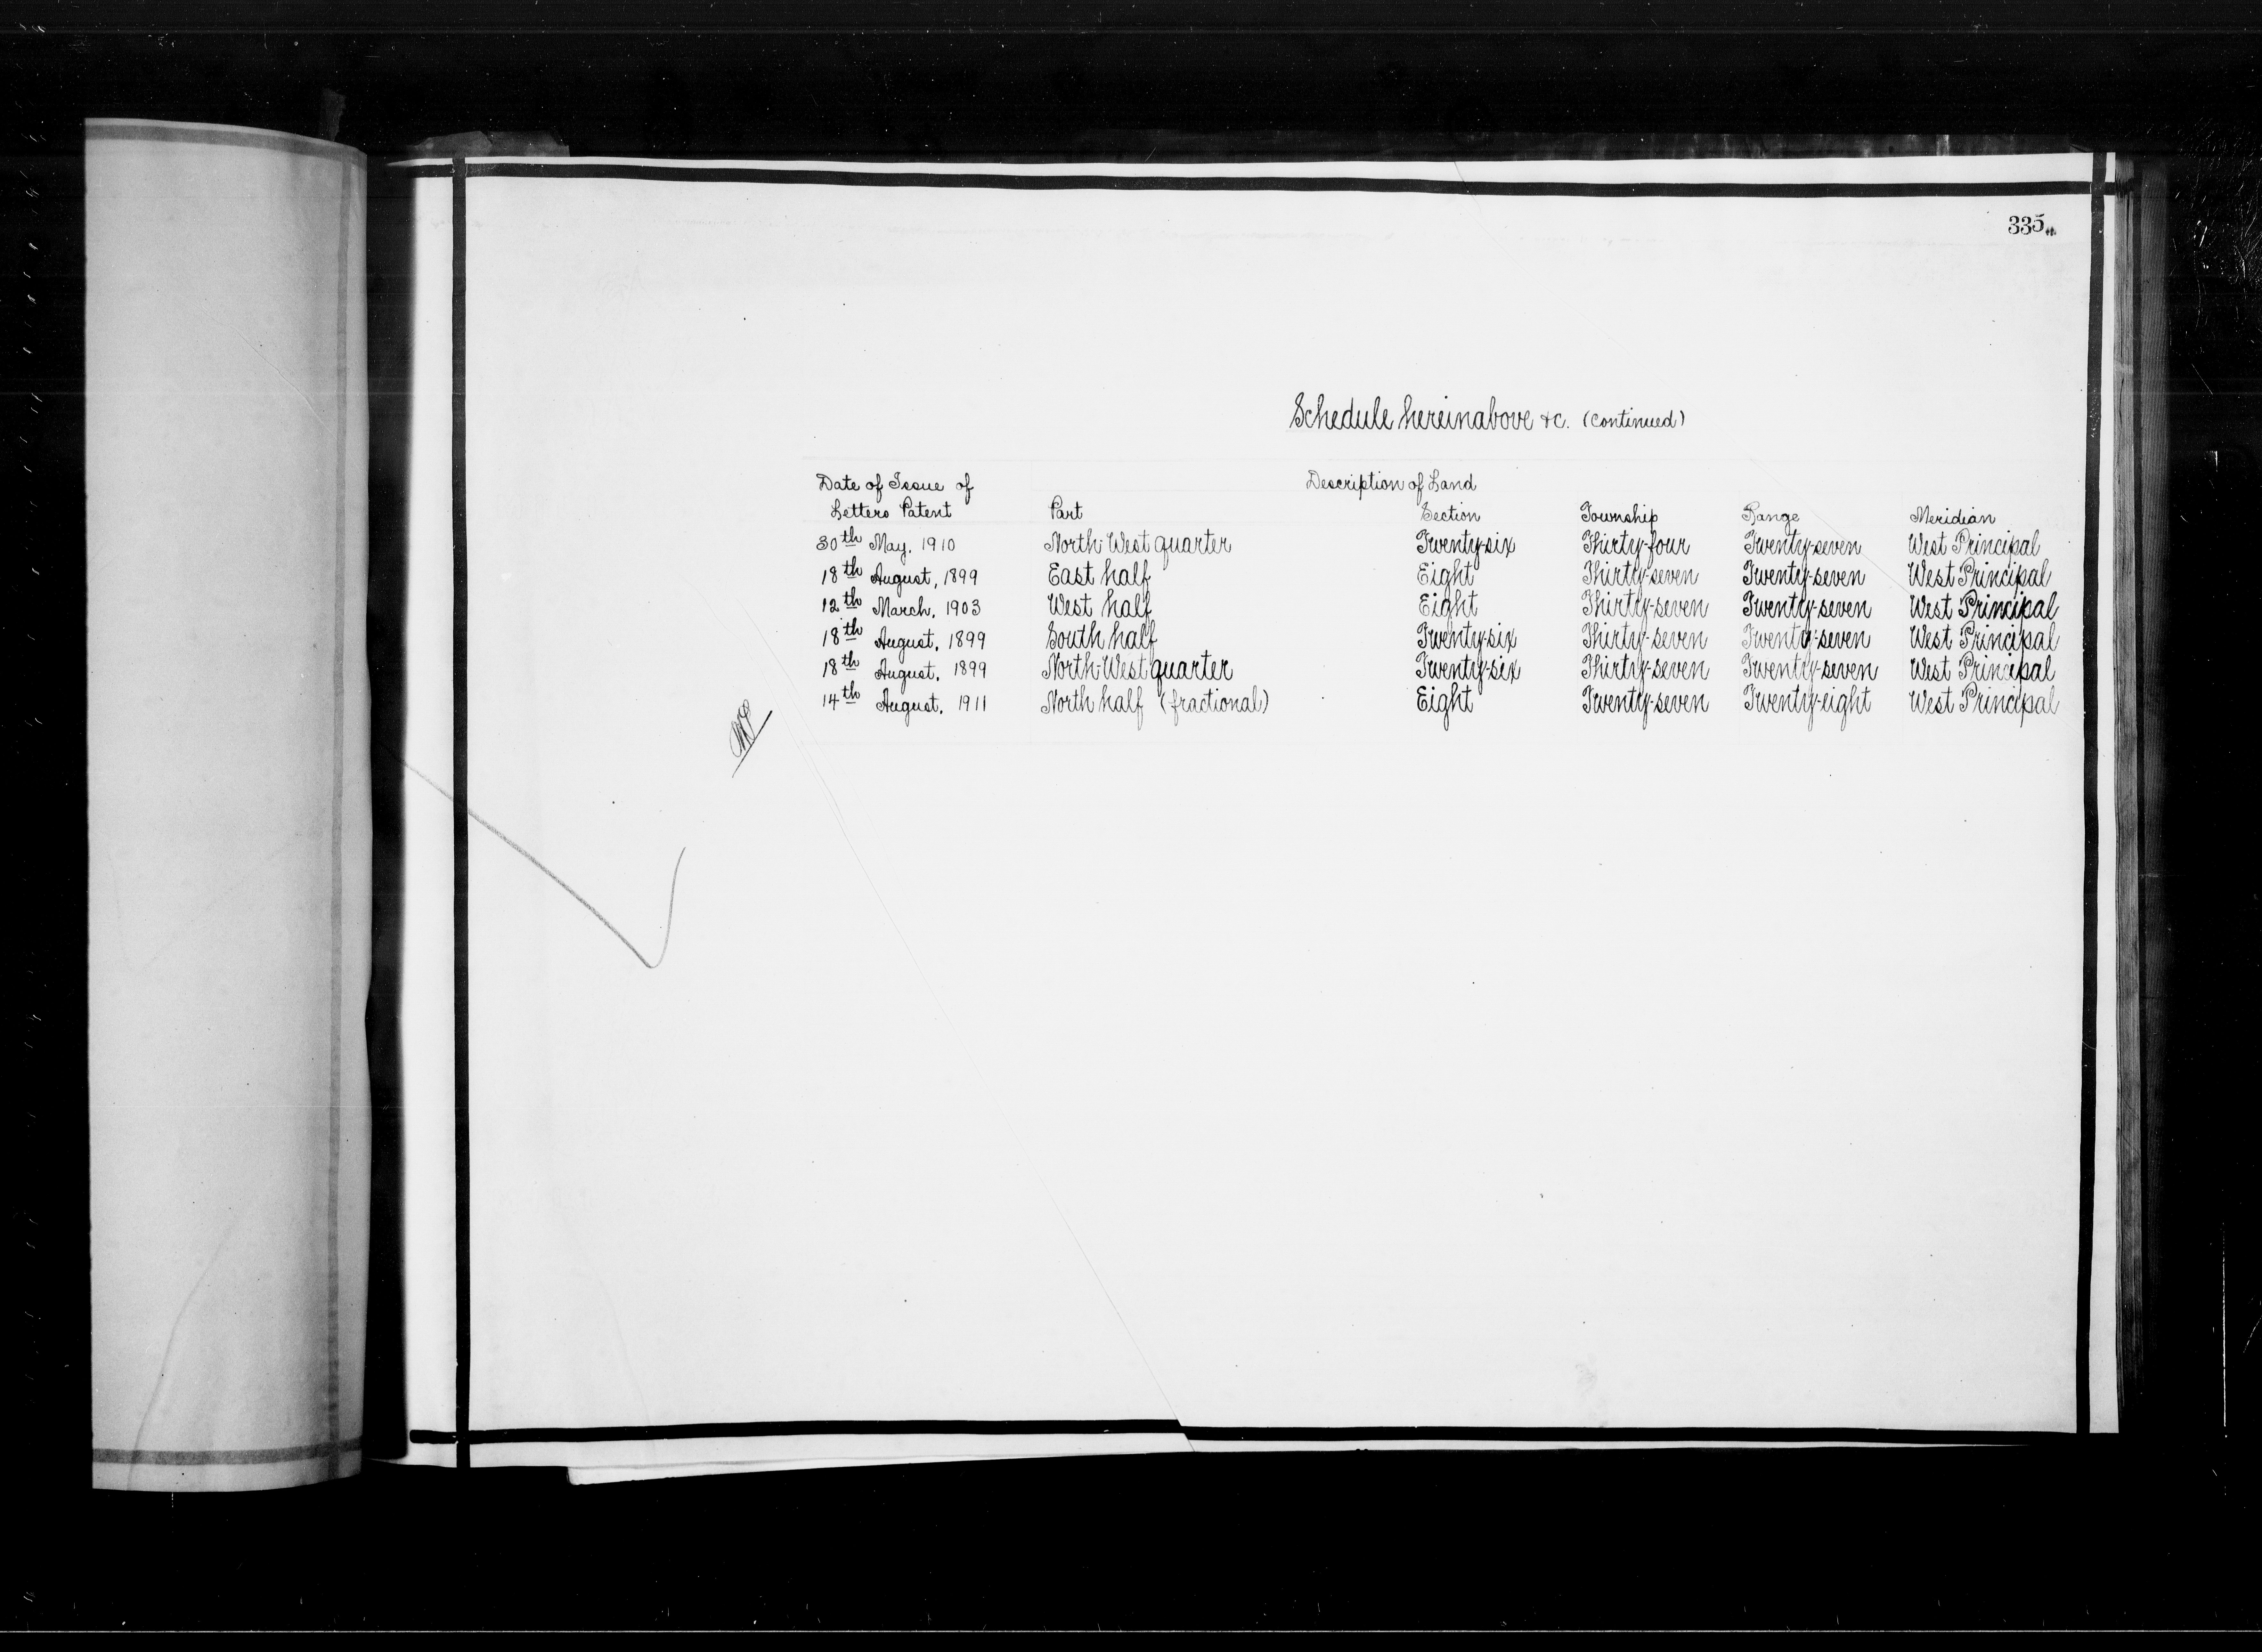 335
Schedule hereinabove &c. (Continued)
Date of Issue of Description of Land
Letters Patent Part Section Township Range Meridian
30th May, 1910 North West quarter Twenty-six Thirty-four Twenty-seven West Principal
18th August, 1899 East half Eight Thirty-seven Twenty-seven West Principal
12th March, 1903 West half Eight Thirty-seven Twenty-seven West Principal
18th August, 1899 South half Twenty-six Thirty-seven Twenty-seven West Principal
18th August, 1899 North West quarter Twenty-six Thirty-seven Twenty-seven West Principal
14th August, 1911 North half (fractional) Eight Twenty-seven Twenty-eight West Principal